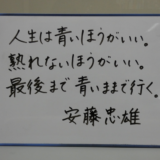 人生は青いほうがいい。
熟れないほうがいい。
最後まで青いままで行く。
安藤忠雄